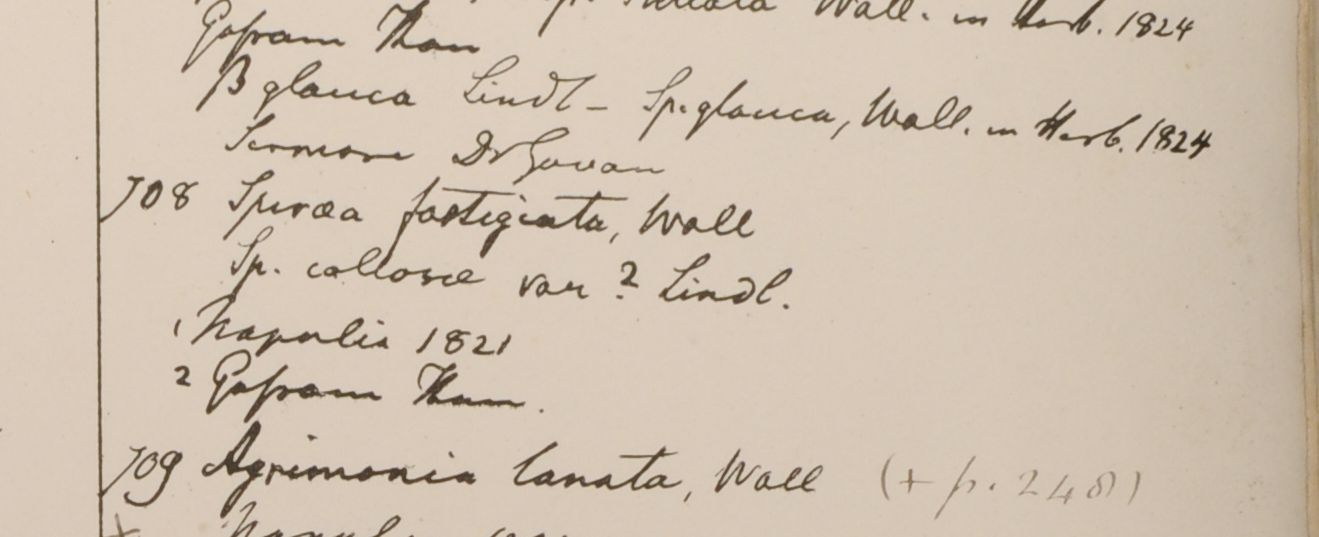 Wall. in Herb. 1824
Gossam Than
β glauca Lindl – Sp. glauca, Wall. in Herb. 1824
Sirmore Dr Govan
708 Spiræa fastigiata, Wall
Sp. callosæ var ? Lindl.
1 Napalia 1821
2 Gossam Than.
709 Agrimonia lanata, Wall (+ p. 248)
+